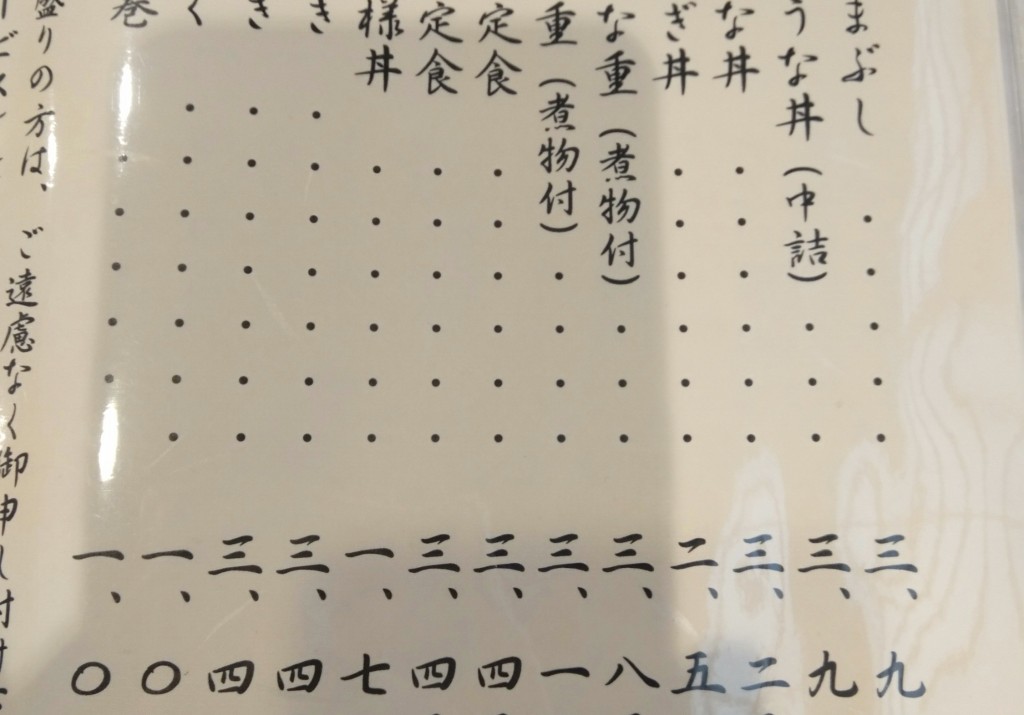 まぶし・・・・・三、九
うな丼(中詰)・・・三、九
な丼・・・・・・三、二
ぎ丼・・・・・・二、五
な重(煮物付)・・・三、八
重(煮物付)・・・・三、一
定食・・・・・・三、四
定食・・・・・・三、四
様丼・・・・・・一、七
き・・・・・・・三、四
き・・・・・・・三、四
く・・・・・・・一、〇
巻・・・・・一、〇
盛りの方は、ご遠慮なく御申し付け